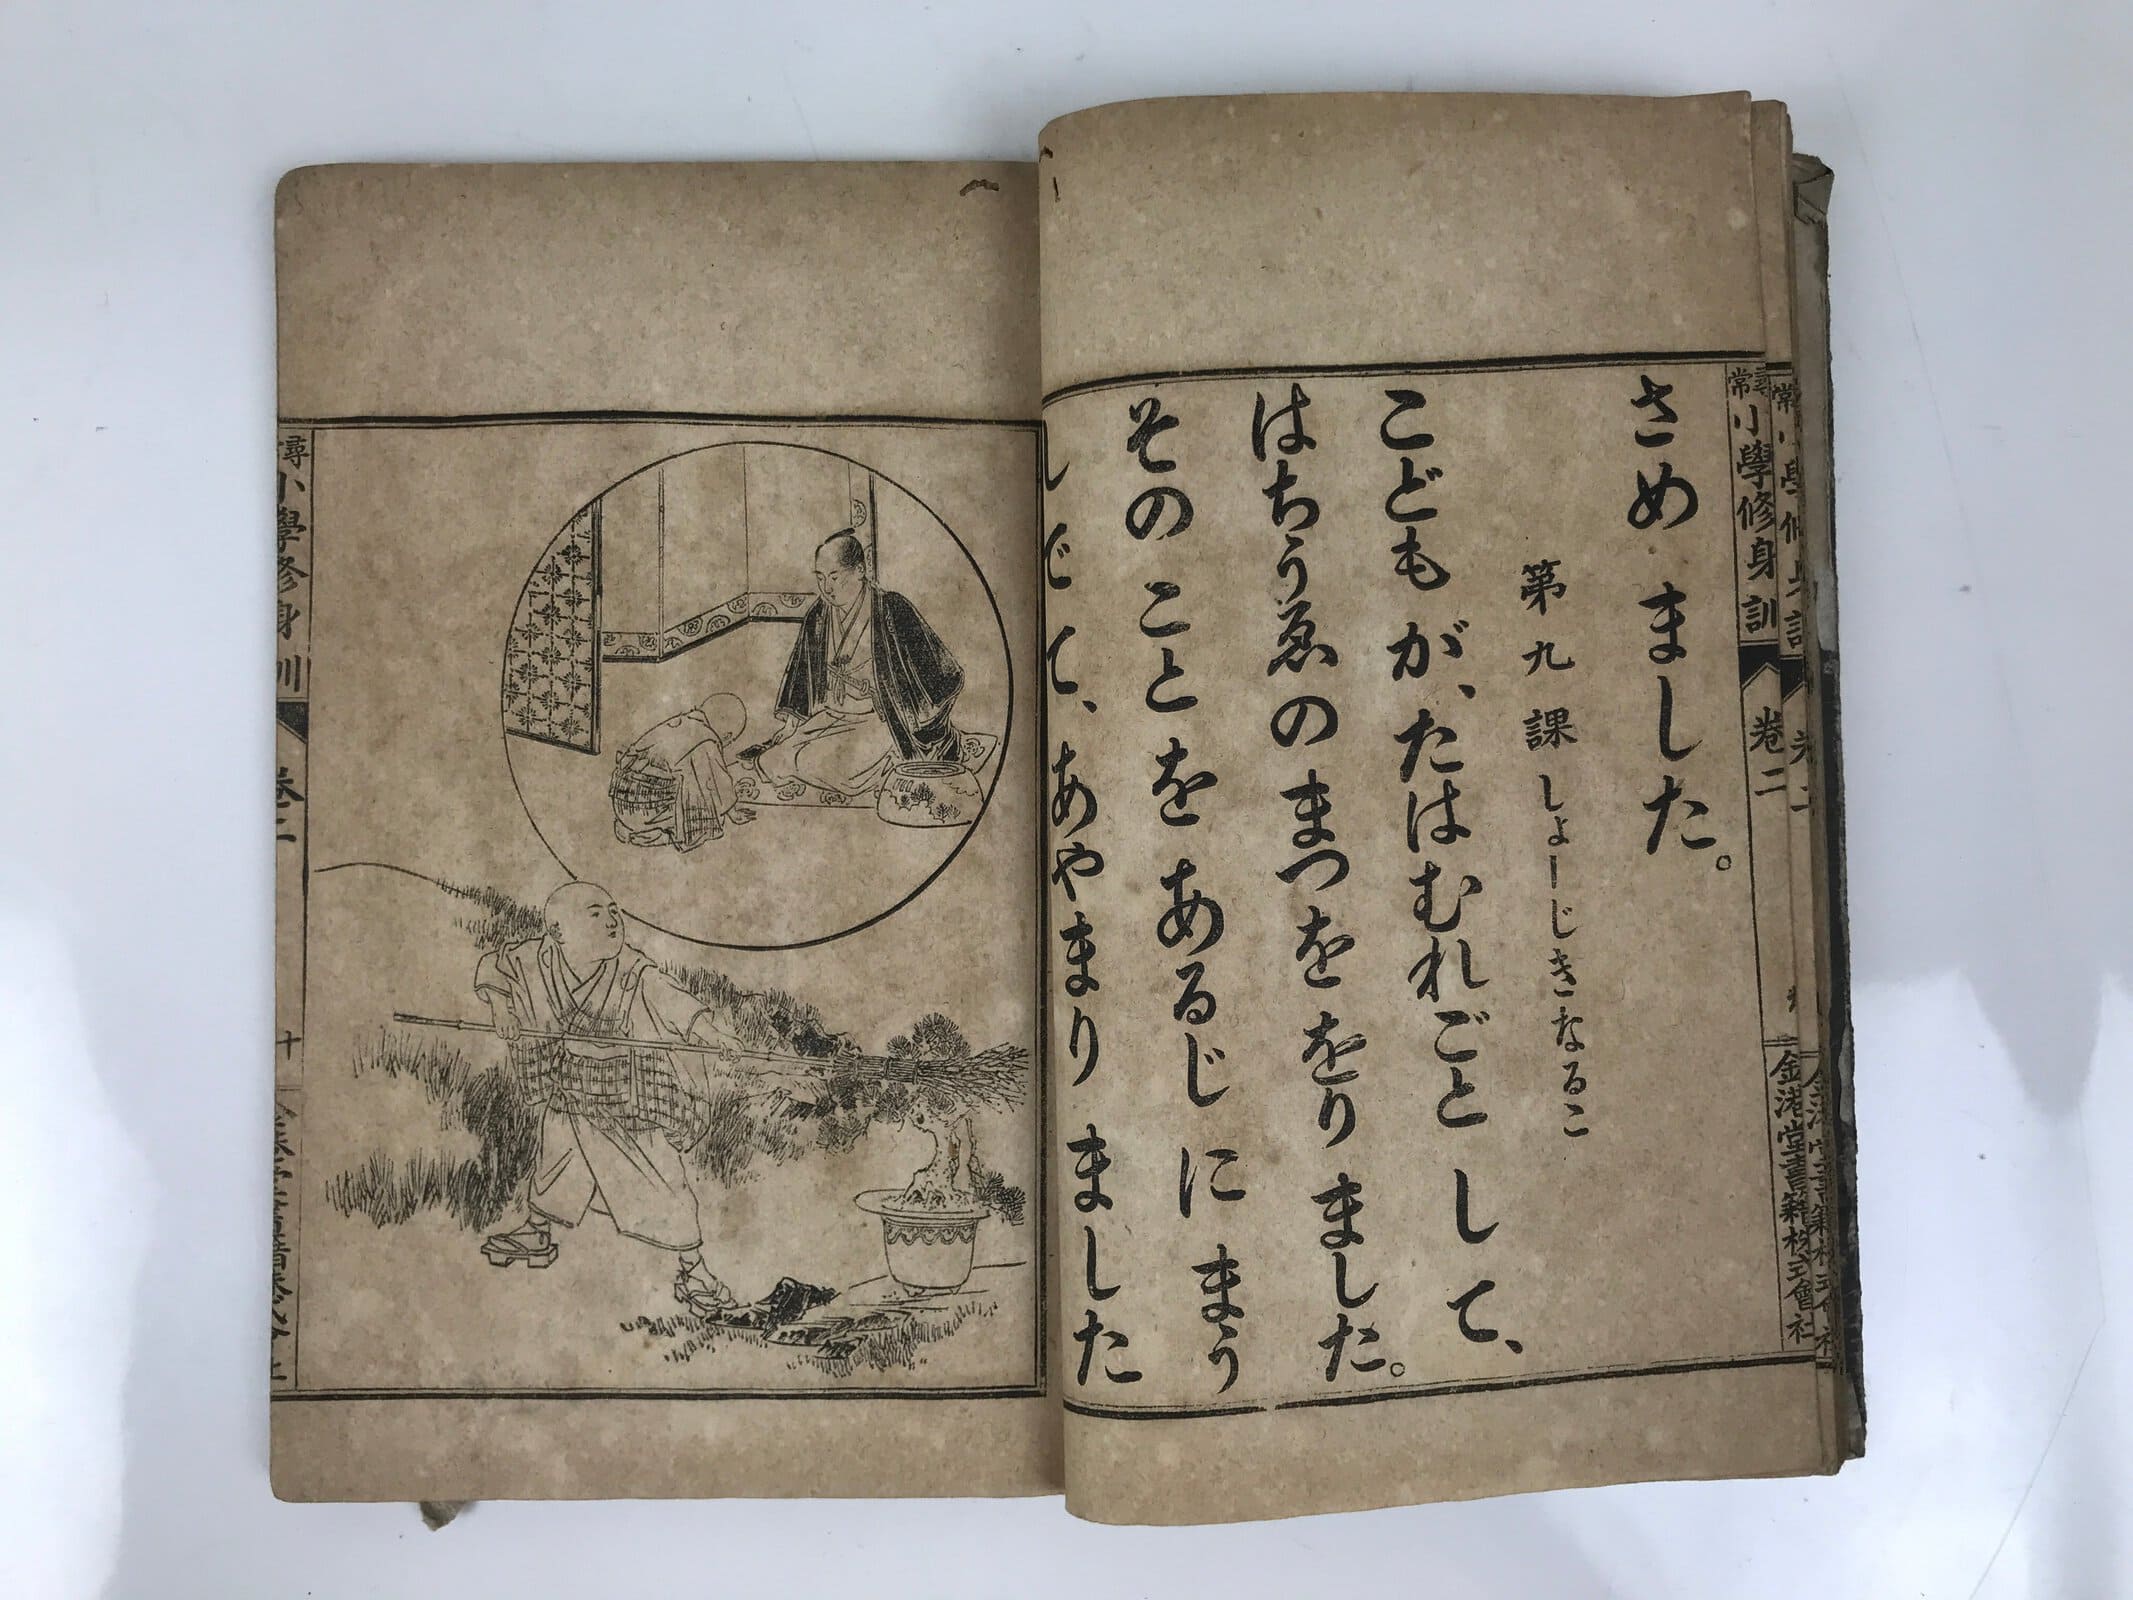 尋常小學修身訓 卷二 金港堂書籍株式會社
さめ ました。
第九課 しょーじきなるこ
こどもが、たはむれごと して、
はちうゑの まつを をり ました。
その ことを あるじに まう
して、あやまり ました
小學修身訓 卷二 十